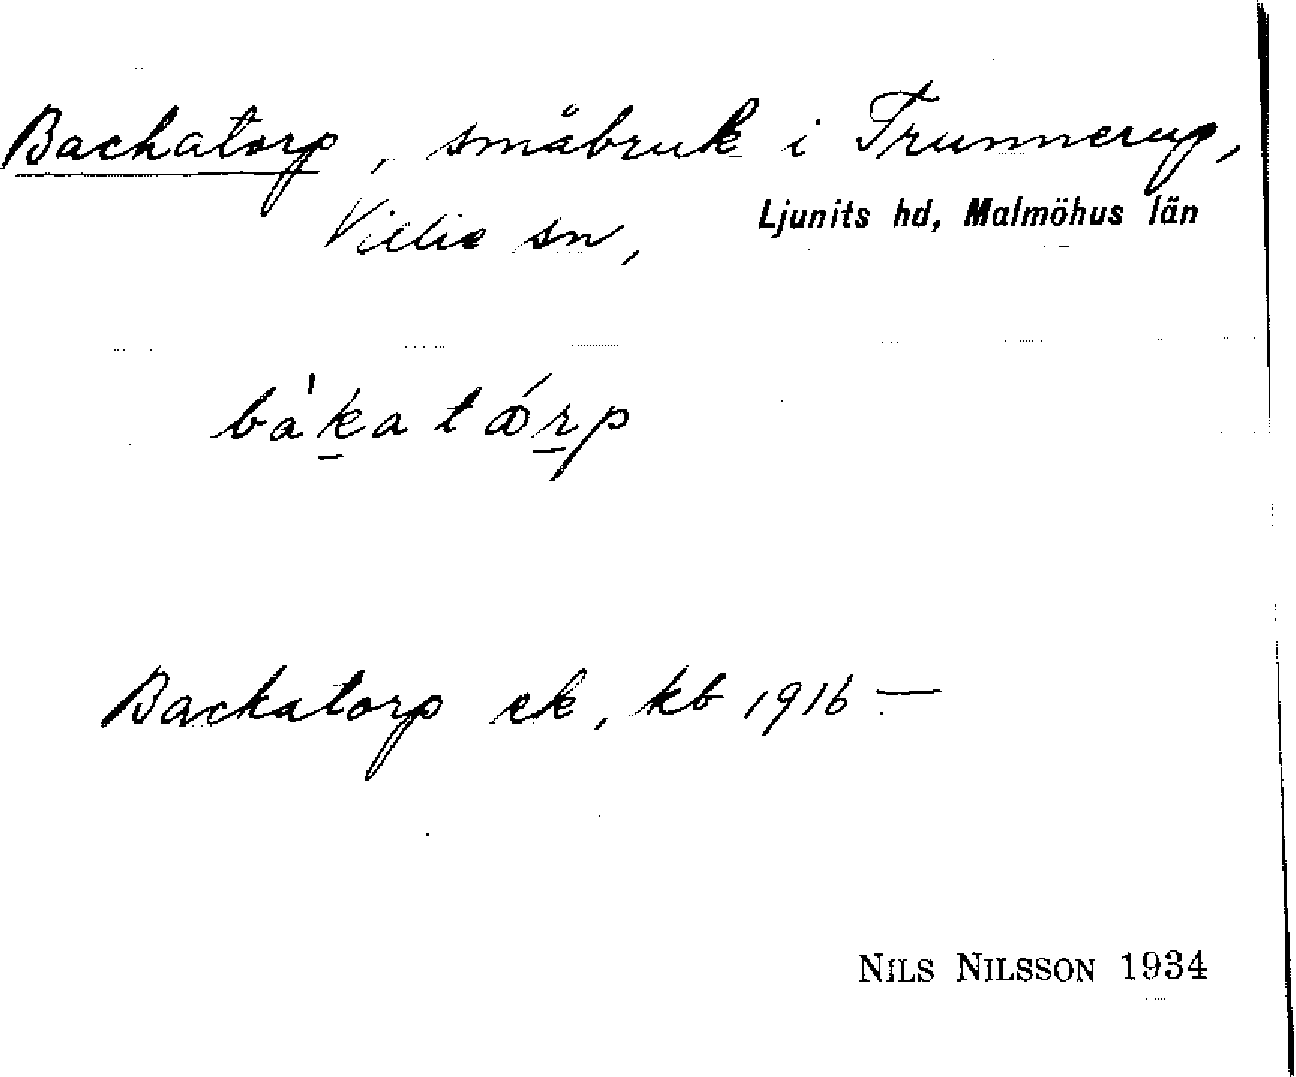 Backatorp, småbruk i Trunnerup,
Villie sn, Ljunits hd, Malmöhus län
bàkatǿrp
Backatorp ek, kb 1916 —
NILS NILSSON 1934